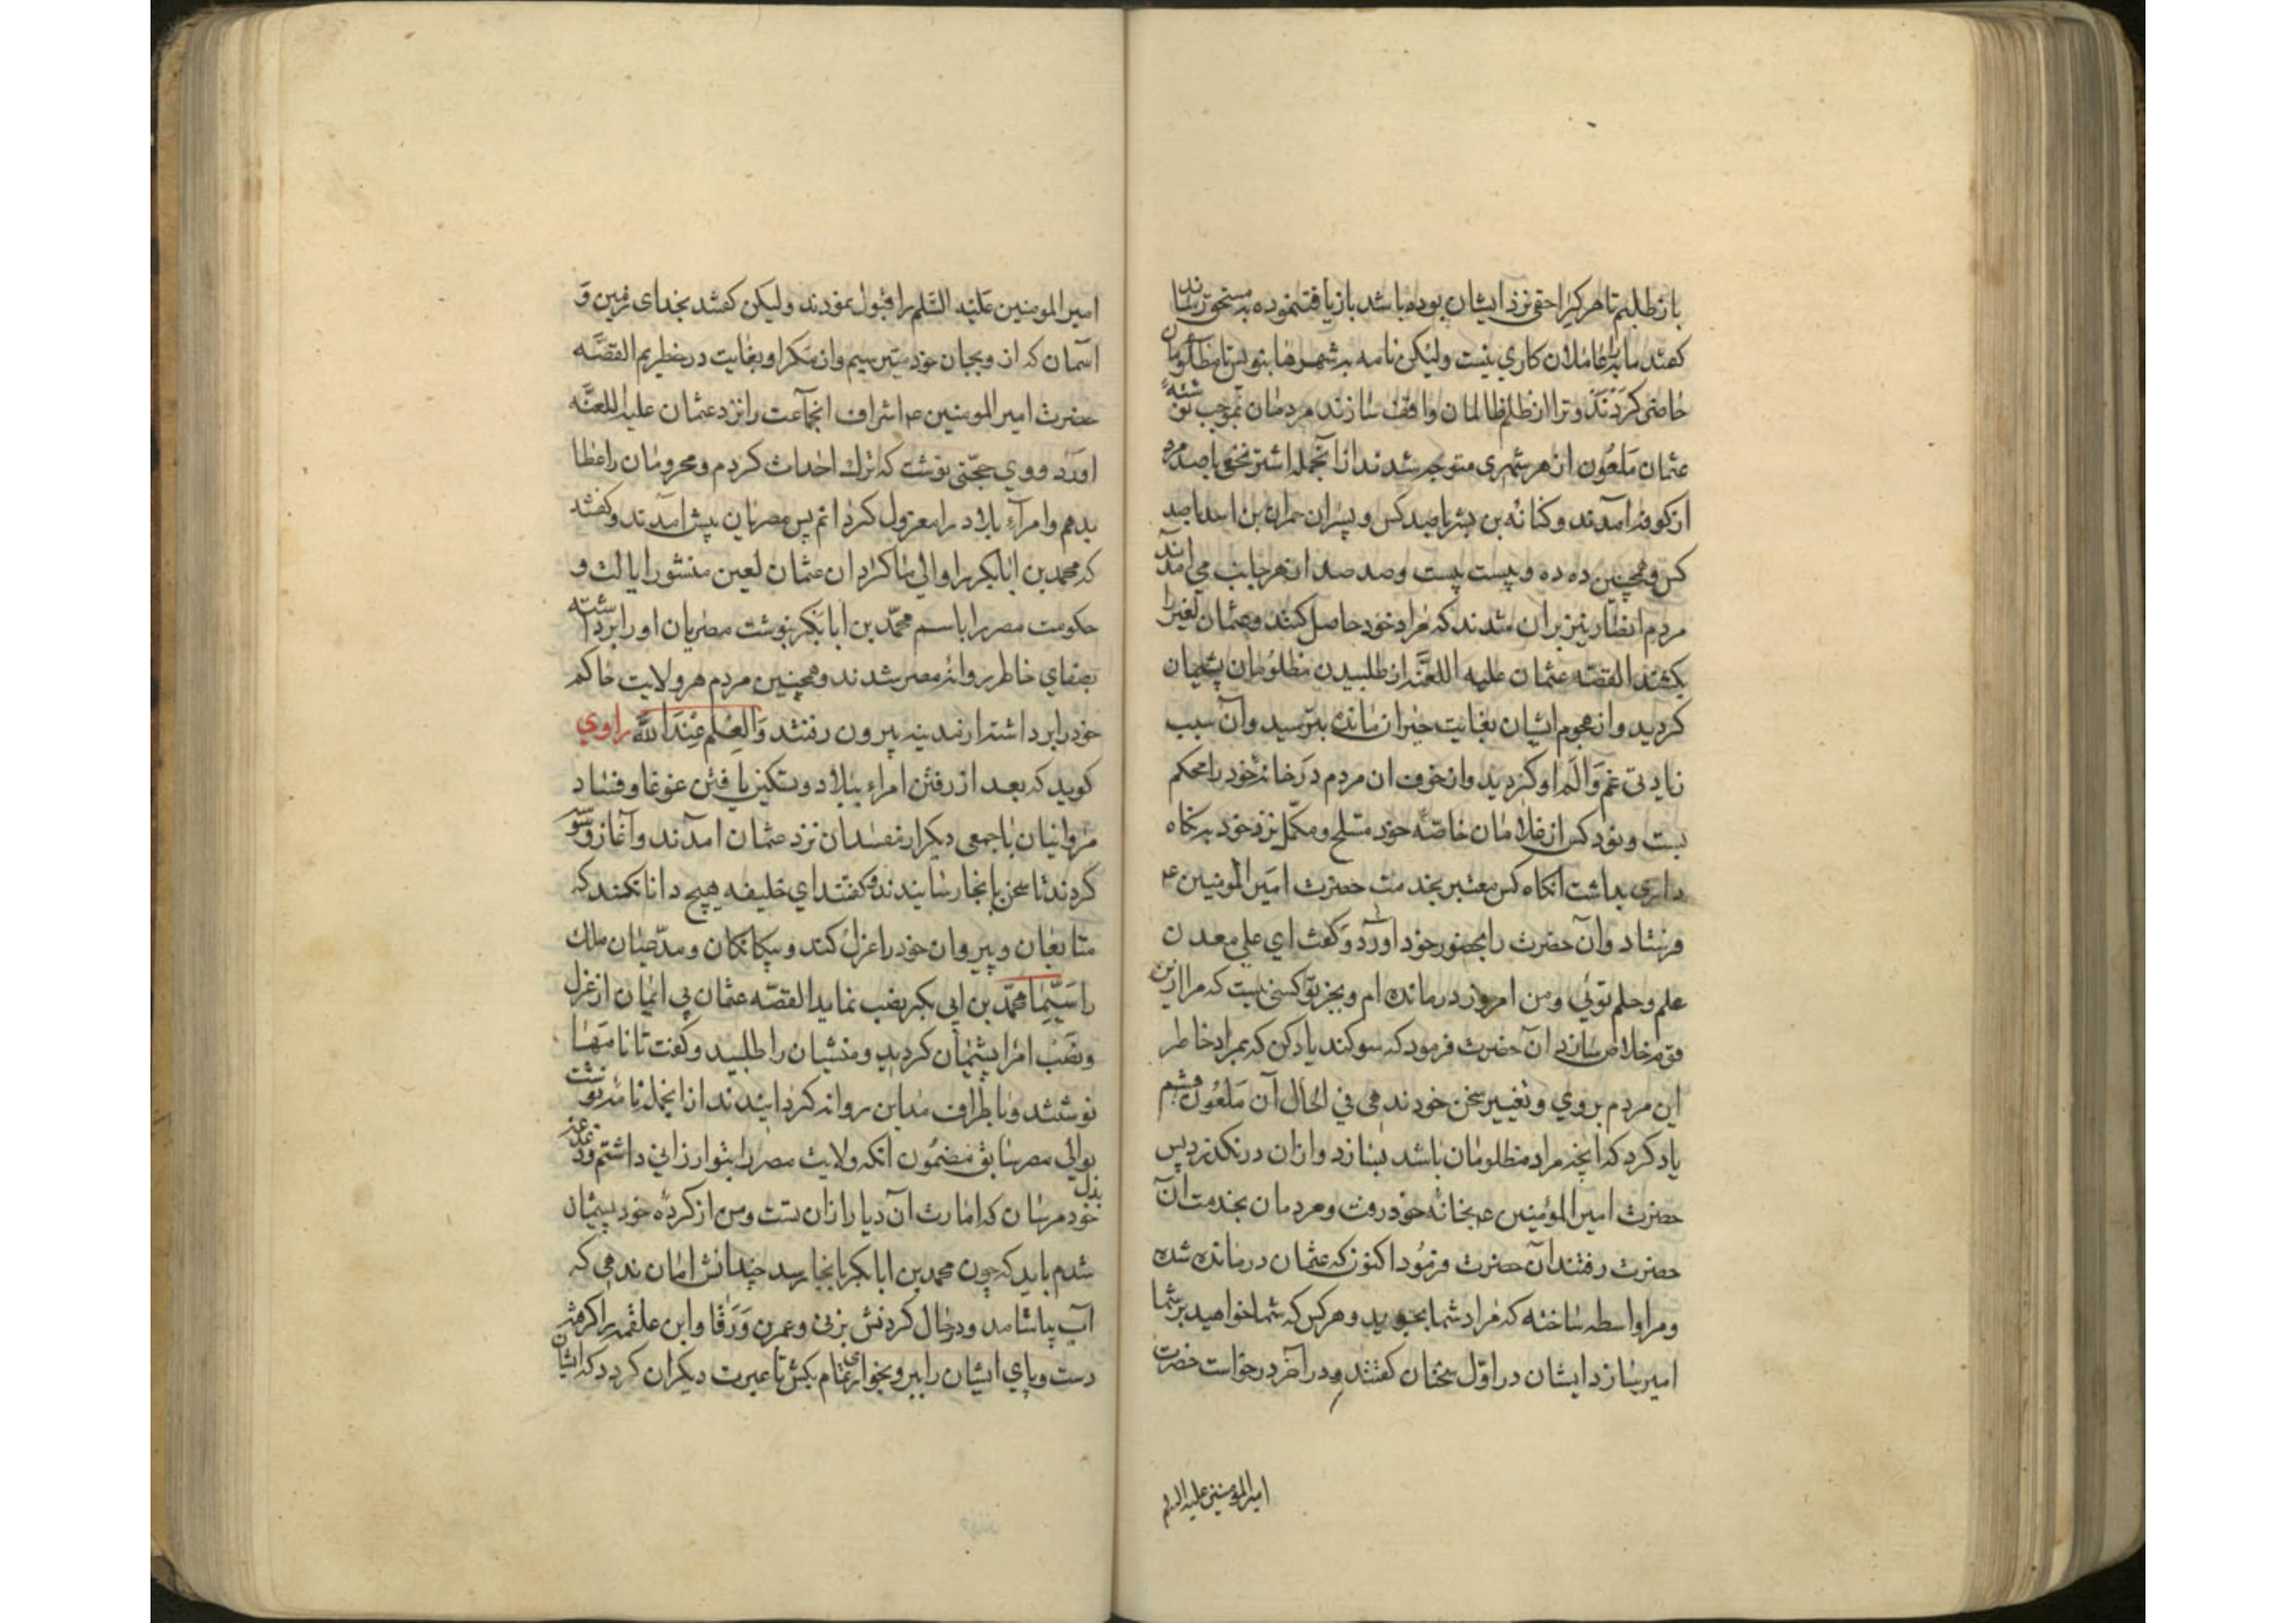 باز طلبم تا هر کرا حقی نزد ایشان بوده باشد بازیافت نموده به مستحق رسانند
کفتند ما را با عاملان کاری نیست ولیکن نامه به شهرها بنویس تا مظلومان
حاضر کردند و ترا از ظلم ظالمان واقف سازند مردمان بموجب نوشتهٔ
عثمان ملعون از هر شهری متوجه شدند از انجمله اشتر نخعی با صد مرد
از کوفه آمدند و کنانه بن بشر با صد کس و پسران حمران بن اسد با صد
کس و همچنین ده ده و بیست بیست و صد صد از هر جانب می آمدند
مردم انظار نیز بران شدند که مراد خود حاصل کنند و عثمان لعین را
بکشند القصه عثمان علیه اللعنه از طلبیدن مظلومان پشیمان
کردید و از هجوم ایشان بغایت حیران مانده بترسید و آن سبب
زیادتی غم و الم او کردید و از خوف ان مردم در خانه خود را محکم
بست و نود کس از غلامان خاصهٔ خود مسلح و مکمل نزد خود به نکاه
داری بداشت انکاه کس معتبر بخدمت حضرت امیر المومنین ع
فرستاد و آن حضرت را بحضور خود آورد و کفت ای علی معدن
علم و حلم توئی و من امروز درمانده ام و بجز تو کسی نیست که مرا ازین
قوم خلاص سازد ان حضرت فرمود که سوکند یاد کن که بمراد خاطر
این مردم بروی و تغییر سخن خود ندهی فی الحال آن ملعون قسم
یاد کرد که انچه مراد مظلومان باشد بسازد و ازان درنکذرد پس
حضرت امیر المؤمنین ع بخانهٔ خود رفت و مردمان بخدمت ان
حضرت رفتند ان حضرت فرمود اکنون که عثمان درمانده شده
و مرا واسطه ساخته که مراد شما بجوید و هر کس که شما خواهید بر شما
امیر سازد ایشان در اول سخنان کفتند و در آخر درخواست حضرت
امیر المؤمنین علیه السلم
امیر المومنین علیه السّلم را قبول نمودند ولیکن کفتند بخدای زمین و
اسمان که از وی بجان خود میترسیم و از مکر او بغایت در خطریم القصّه
حضرت امیر المومنین ع اشراف انجماعت را نزد عثمان علیه اللعنّه
اورد و وی حجّتی نوشت که ترک احداث کردم و محرومان را عطا
بدهم و امراء بلاد را معزول کردانم پس مصریان پیش آمدند و کفتند
که محمد بن ابابکر را والی ما کردان عثمان لعین منشور ایالت و
حکومت مصر را باسم محمّد بن ابابکر بنوشت مصریان او را برداشته
بصفای خاطر روانهٔ مصر شدند و همچنین مردم هر ولایت حاکم
خود را برداشته از مدینه بیرون رفتند وَالعِلم عِندَ الله راوی
کوید که بعد از رفتن امراء ببلاد و تسکین یافتن غوغا و فساد
مروانیان با جمعی دیکر از مفسدان نزد عثمان امدند و آغاز وسوسه
کردند تا سخن بانجا رسانیدند و کفتند ای خلیفه هیچ دانا نکند که
متابعان و پیروان خود را عزل کند و بیکانکان و مدّعیان ملک
را سیّما محمّد بن ابی بکر نصب نماید القصّه عثمان بی ایمان از عزل
و نصب امرا پشیمان کردید و منشیان را طلبید و کفت تا نامها
نوشتند و باطراف مداین روانه کردانیدند از انجمله نامه نوشت
بوالی مصر سابق مضمون انکه ولایت مصر را بتو ارزانی داشتم
خود مرسان که امارت آن دیار ازان تست و من از کردهٔ خود پشیمان
شدم باید که چون محمد بن ابابکر بانجا رسد چندانش امان ندهی که
آب بیاشامد و در حال کردنش بزنی و عمر بن وَرَقا و ابن علقمه را کرفته
دست و پای ایشان را ببر و بخواری تمام بکش تا عبرت دیکران کردد که ایشان